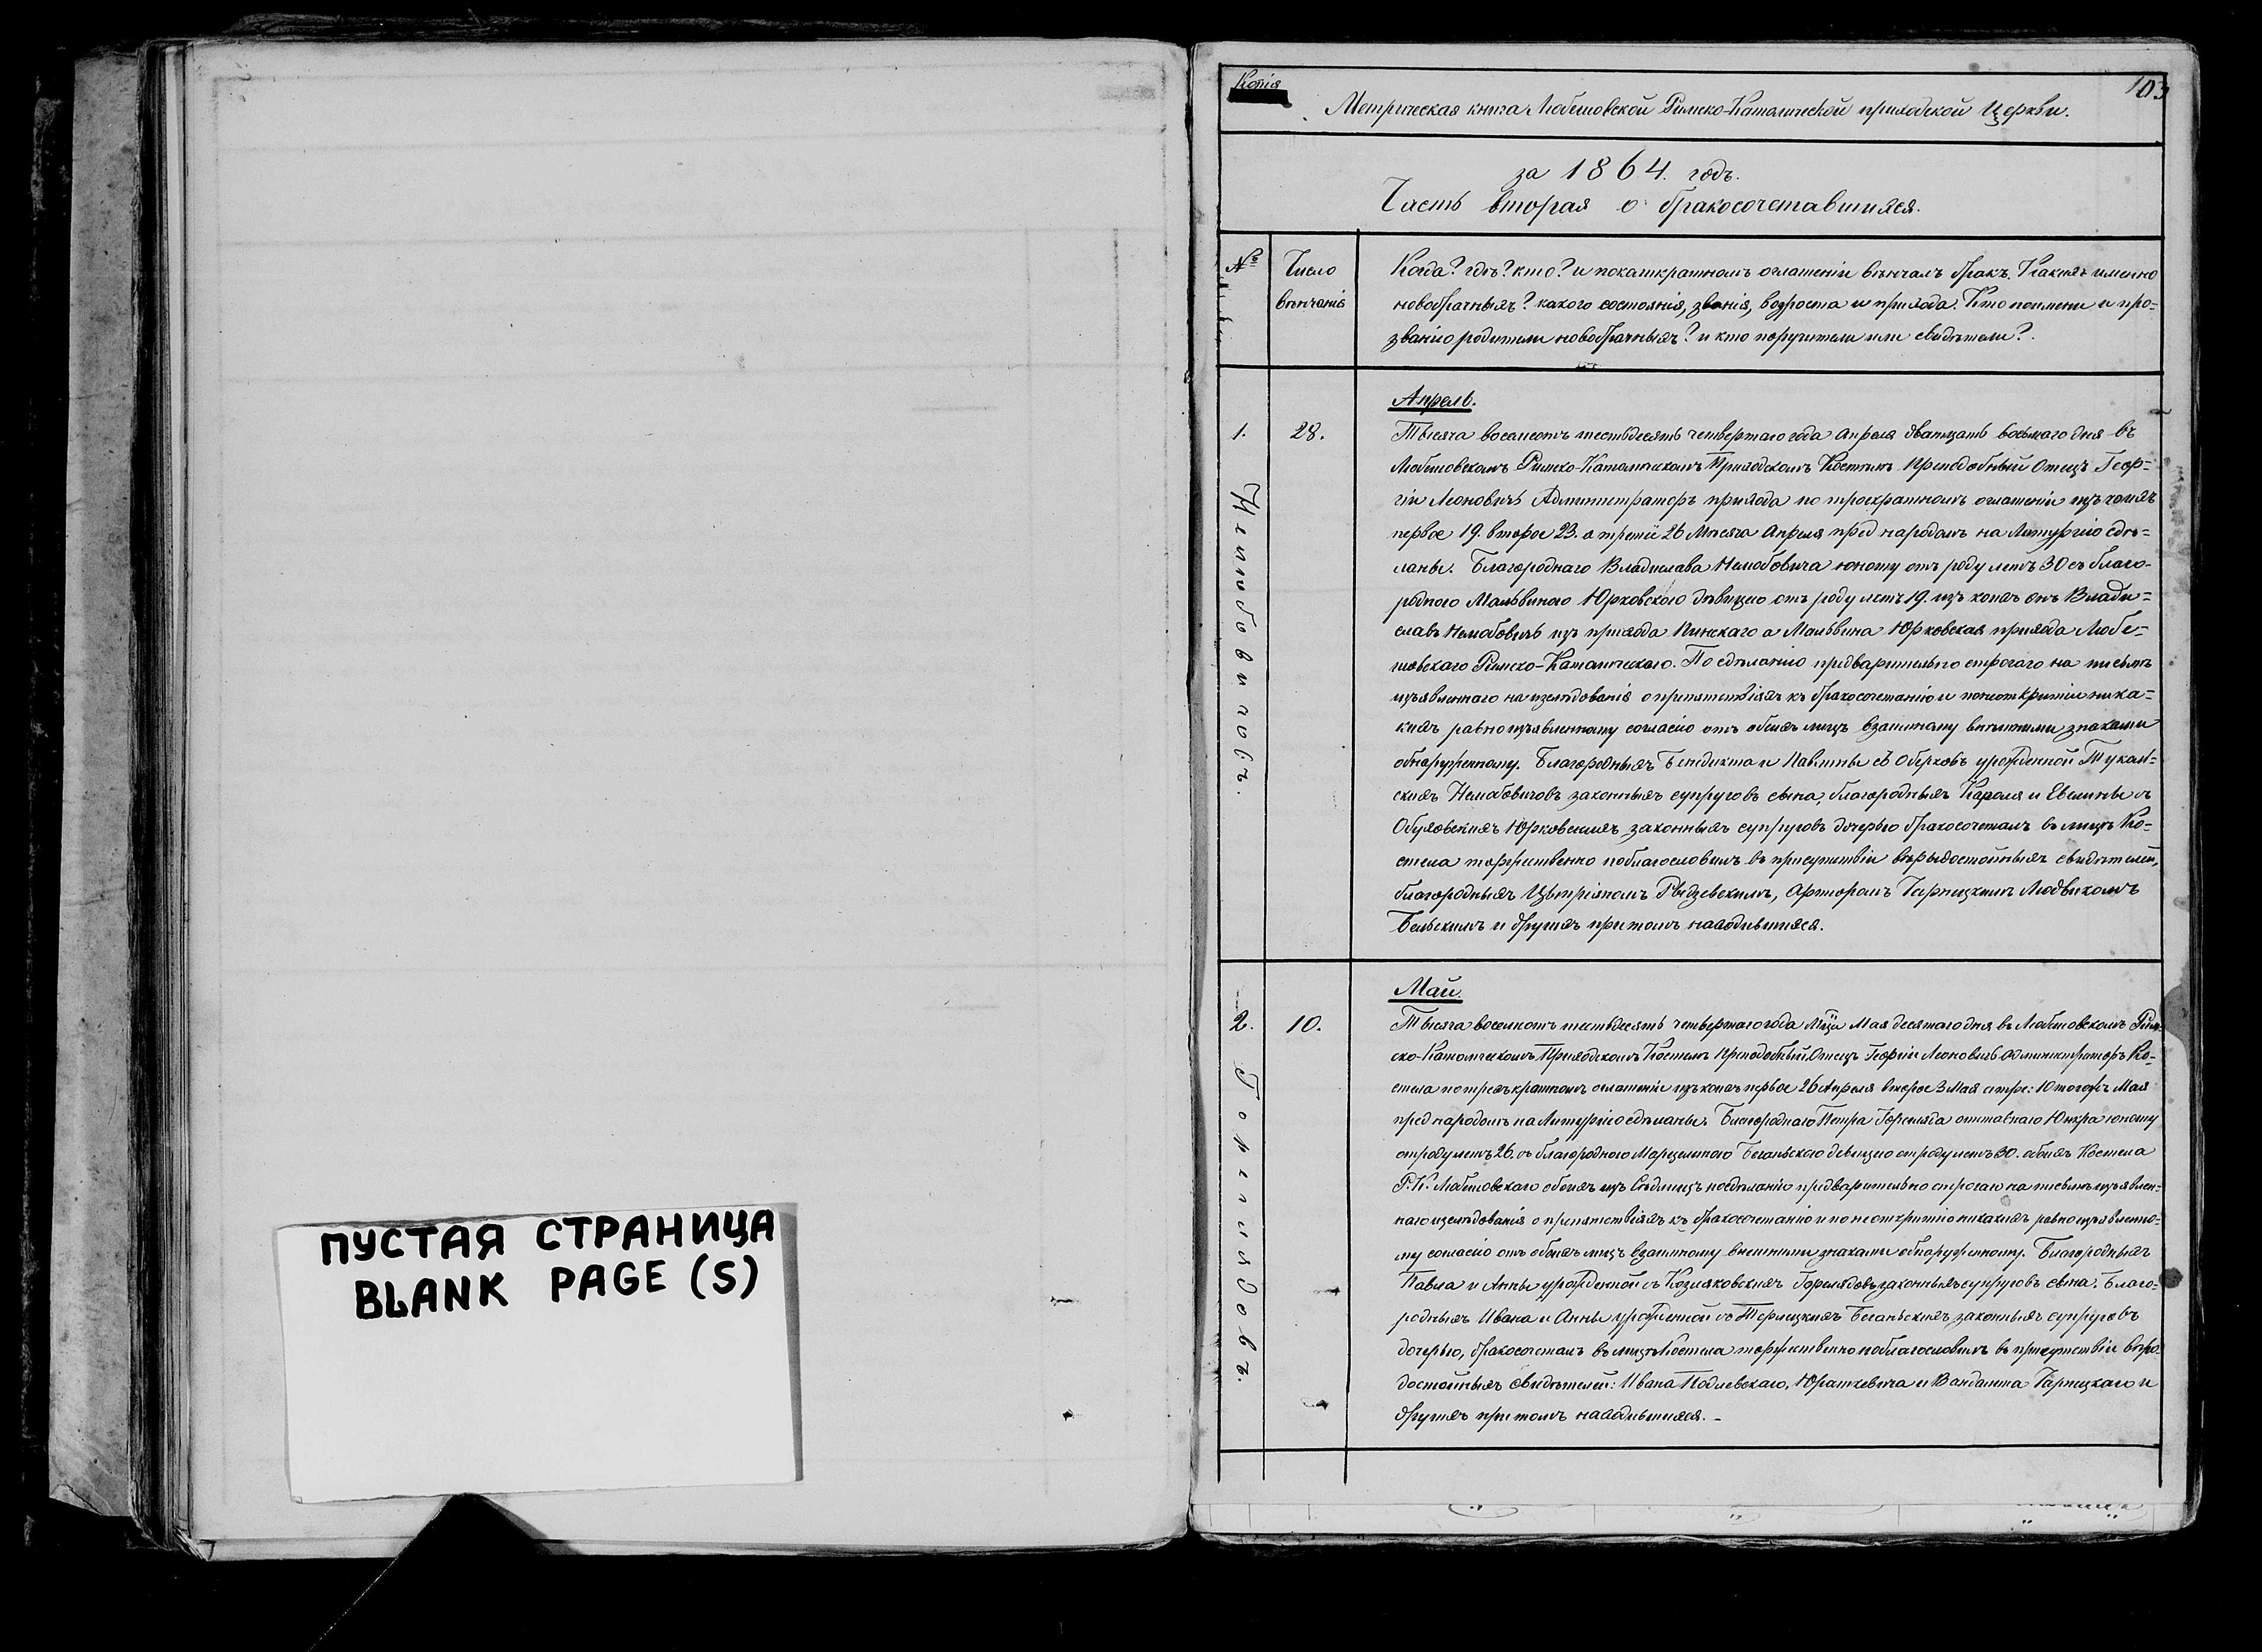 ПУСТАЯ СТРАНИЦА
BLANK PAGE (S)
Копія
103
Метрическая книга Любешовской Римско-Католической приходской Церкви.
за 1864. годъ.
Часть вторая о бракосочетавшихся.
№
Число
вѣнчанія
Когда? гдѣ? кто? и покаткратномъ оглашеніи вѣнчалъ бракъ. Какихъ именно
новобрачныхъ? какого состоянія, званія, возроста и прихода. Кто поимени и про=
званію родители новобрачныхъ? и кто поручители или свидѣтели?.
Апрель.
1.
28.
Тысяча восемсотъ шестьдесятъ четвертаго года Апреля дватцать восьмаго дня въ
Любешовскомъ Римско-Католическомъ Приходскомъ Костелѣ Преподобный Отецъ Геор=
гій Леоновичъ Администраторъ прихода по троекратномъ оглашеніи изъ коихъ
первое 19. второе 23. а третіе 26 Мѣсяца Апреля пред народомъ на Литургію сдѣ=
ланы. Благороднаго Владислава юному отъ роду летъ 30 съ благо-
родною Мальвиною Юрковскою дѣвицею отъ роду летъ 19. изъ коихъ онъ Влади=
славъ изъ прихода Пинскаго а Мальвина Юрковская прихода Любе=
шовскаго Римско-Католическаго. По сдѣланію предварительно строгаго на письмѣ
изъявленнаго о препятствіяхъ къ бракосочетанію и ника=
кихъ равно изъявленному согласію отъ обеихъ лицъ взаимному внѣшними знаками
обнаруженному. Благородныхъ Бенедикта и урожденной
законныхъ супруговъ сына, благородныхъ Кароля и Евелины съ
Юрковскихъ законныхъ супруговъ дочерью бракосочеталъ въ лицѣ Ко=
стела торжественно поблагословилъ въ присутствіи свидѣтелей,
благородныхъ Людвикомъ
Бельскимъ и другихъ при томъ находившихся.
Май.
2.
10.
Тысяча восемсотъ шестьдесятъ четвертаго года Мца Мая десятаго дня въ Любешовскомъ Рим-
ско-Католическомъ Приходскомъ Костелѣ Преподобный Отецъ Георгій Леоновичъ Администраторъ Ко-
стела по трехъкратномъ оглашеніи изъ коихъ первое 26 Апреля второе 3 Мая 10 тогожъ Мая
пред народомъ на Литургію сдѣланы. Благороднаго Петра отставнаго Юнкра юному
отроду летъ 26. съ благородною девицею отроду летъ 30. обоихъ Костела
Р. К. Любешовскаго предварительно строгаго на письмѣ изъявлен-
наго о препятствіяхъ къ бракосочетанію и никакихъ равно изъявленно-
му согласію отъ обоихъ лицъ взаимному внешними знаками обнаруженному. Благородныхъ
Павла и Анны урожденной съ Козляковскихъ законныхъ супруговъ сына. Благо-
родныхъ Ивана и Анны урожденной съ законныхъ супруговъ
дочерью, бракосочеталъ въ лицѣ Костела торжественно поблагословилъ въ присутствіи вѣро-
достойныхъ свидѣтелей: Ивана Подлевскаго, Юраткевича и и
другихъ при томъ находившихся. -